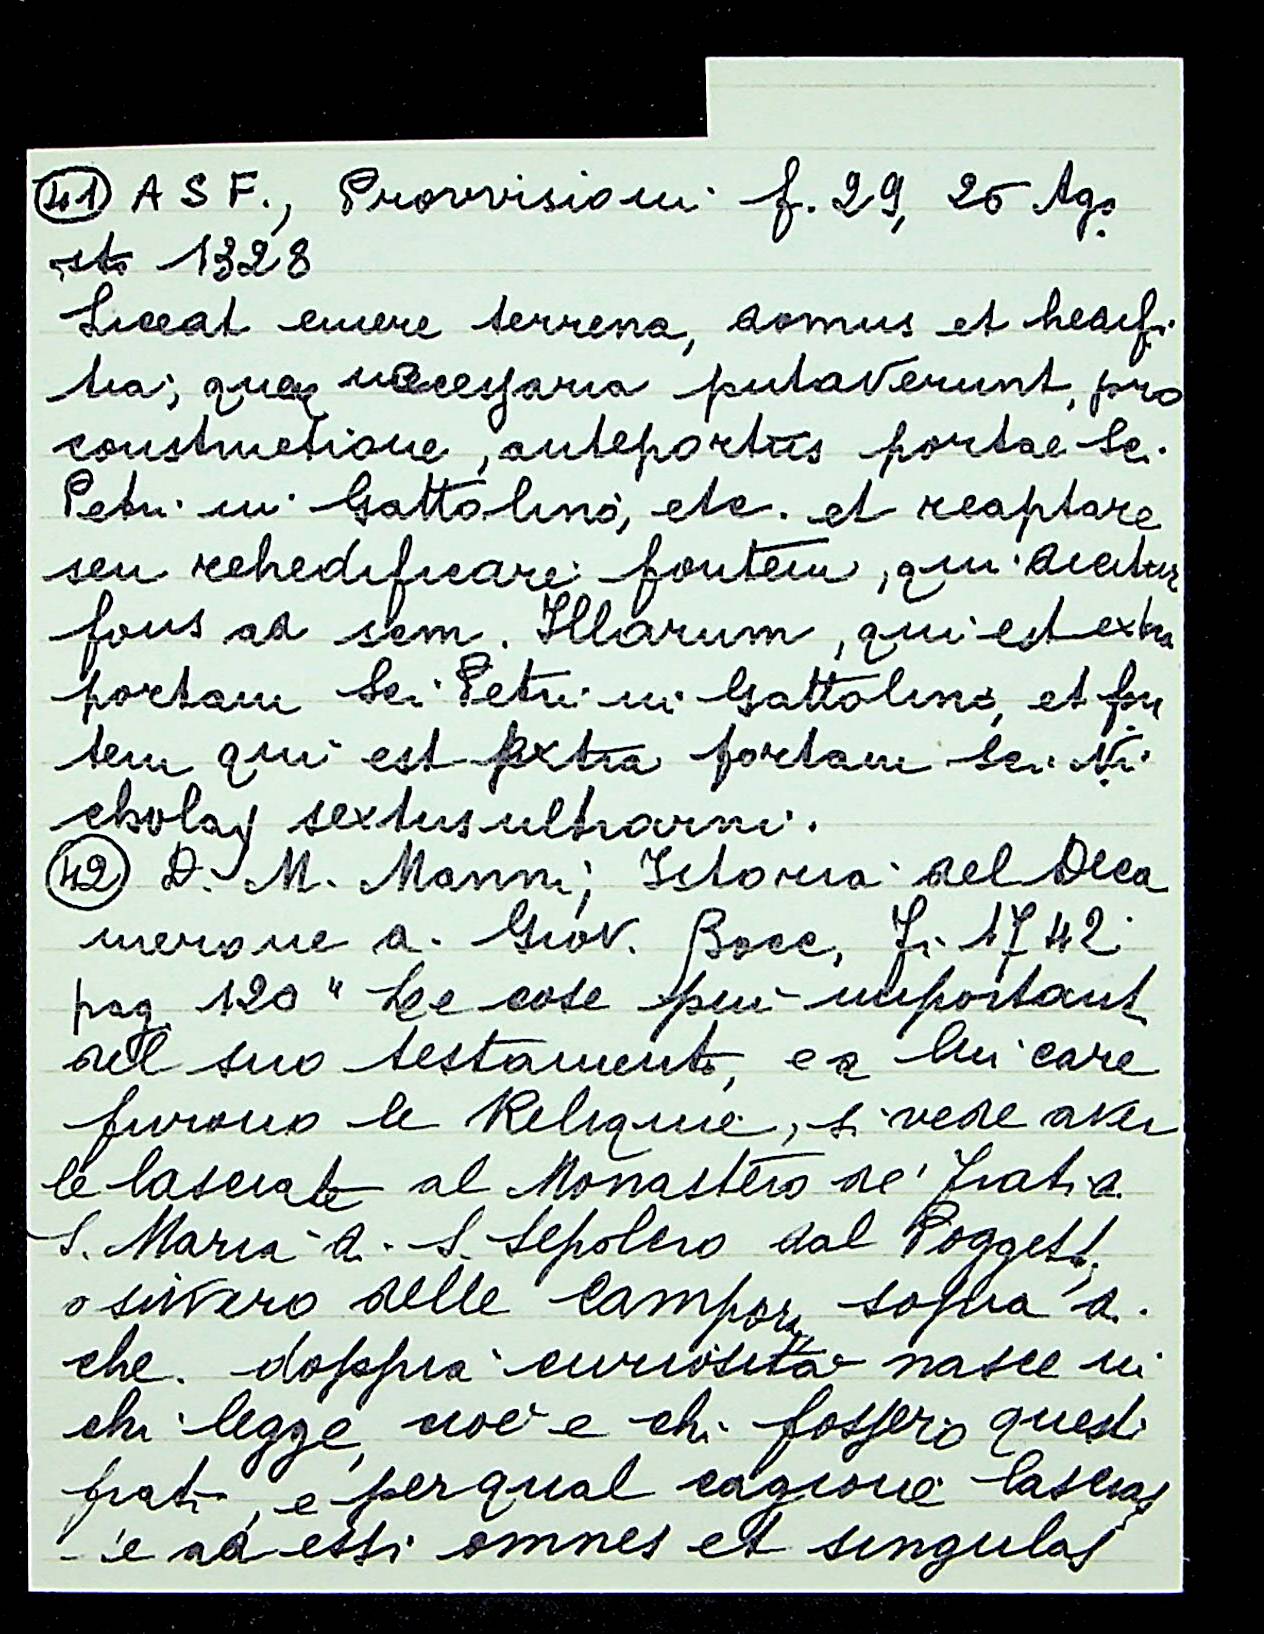 41) A S F., Provvisioni f. 29, 26 Ago
sto 1328
Liceat emere terrena, domus et hedifi
tia; quae necessaria putaverunt, pro
constructione, anteportus portae Sci.
Petri in Gattolino, etc. et reaptare
seu rehedificare fontem, qui dicitur
fons ad scm. Illarum, qui est extra
portam Sci. Petri in Gattolino, et fon
tem qui est extra portam Sci. Ni
cholay sextus ultrarni.
42) D. M. Manni; Istoria del Deca
merone di Giov. Bocc, Fi. 1742
pag. 120 " Le cose più importanti
del suo testamento, e a lui care
furono le Reliquie, si vede aver
le lasciate al Monastero de' Frati di
S. Maria di S. Sepolcro dal Poggetto,
o sivvero delle Campora, sopra di
che doppia curiosità nasce in
chi legge, cioè e chi fossero questi
frati, e per qual cagione lascias
se ad essi omnes et singulas